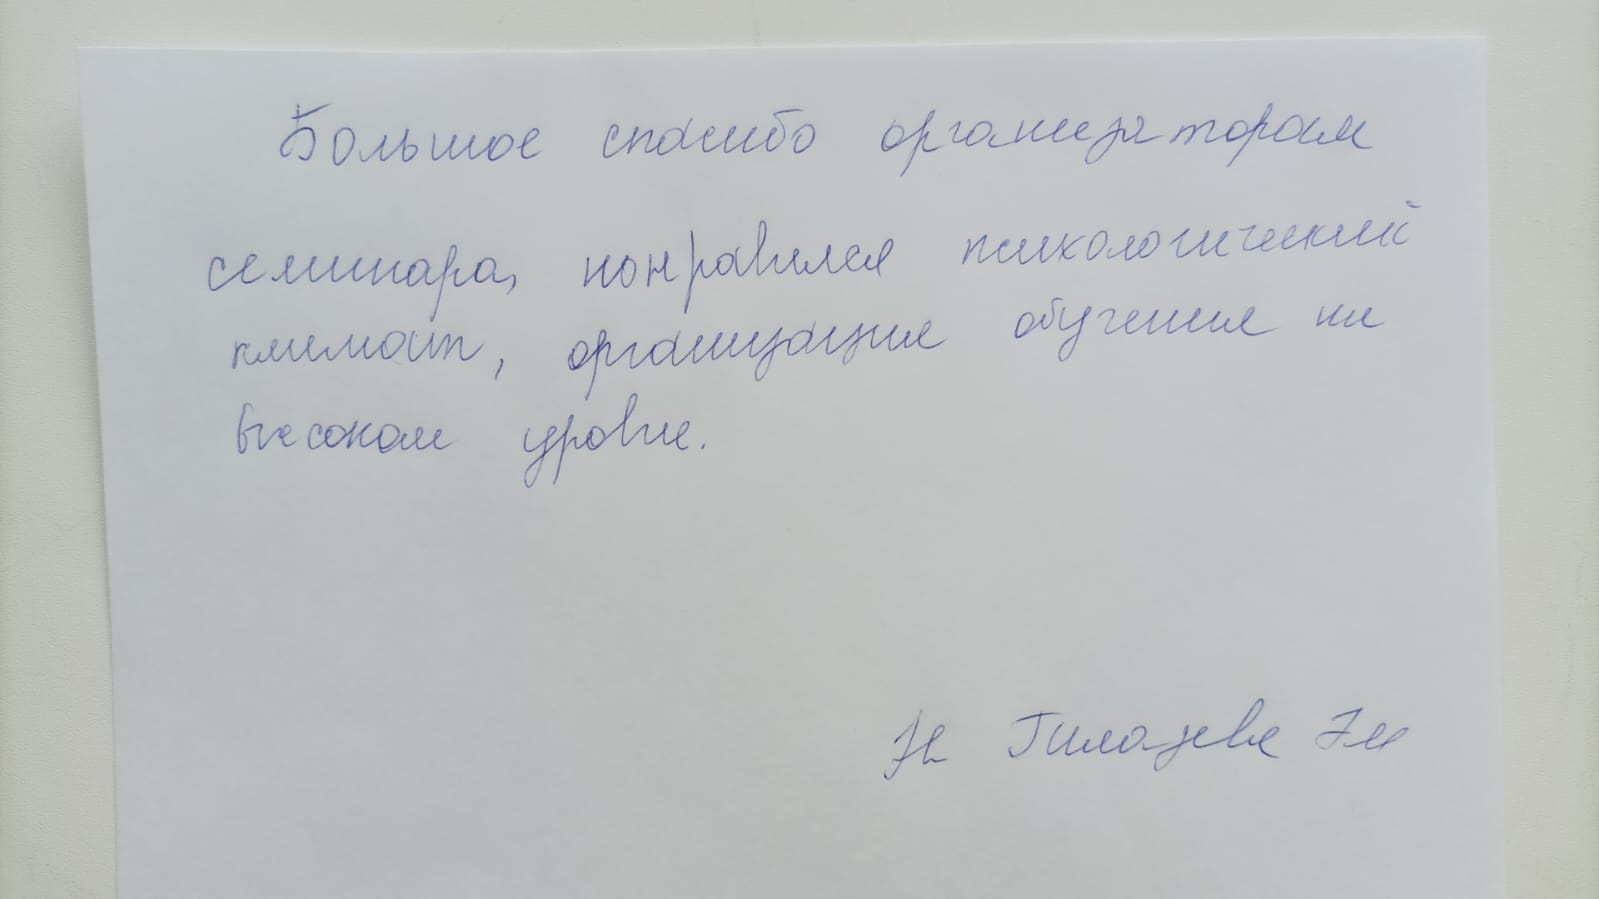 Большое спасибо организаторам
семинара, понравился психологический
климат, организация обучения на
высоком уровне.
Гилазева